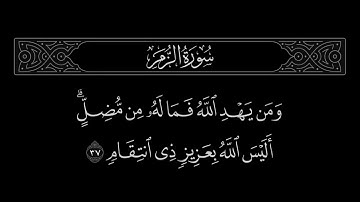 سُورَةُ الزُّمَرِ
وَمَن يَهْدِ ٱللَّهُ فَمَا لَهُۥ مِن مُّضِلٍّ ۗ
أَلَيْسَ ٱللَّهُ بِعَزِيزٍ ذِى ٱنتِقَامٍ ٣٧